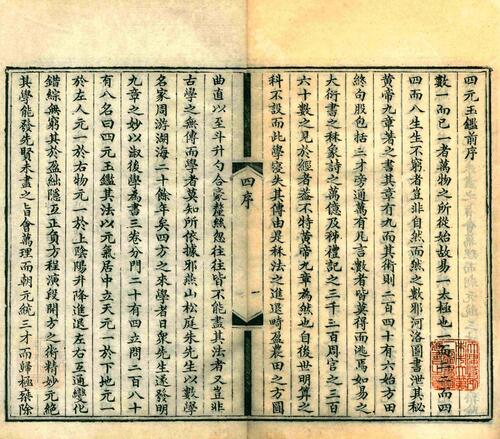 四元玉鑑前序
數一而已一者萬物之所從始故易一太極也一而二二而四
四而八生生不窮者豈非自然而然之數邪河洛圖書泄其秘
黃帝九章著之書其章有九而其術則二百四十有六始方田
終句股包括三才旁通萬有凡言數者皆莫得而逃焉如易之
大衍書之秝象詩之萬億及秭禮記之三千三百周官之三百
六十數之見於經者蓋不特黃帝九章為然也自後世明算之
科不設而此學寖失其傳由是秝法之進退時盈農田之方圓
四序
一
曲直以至斗升勺合豪釐絲忽往往皆不能盡其法者又豈非
古學之無傳而學者莫知所依據邪燕山松庭朱先生以數學
名家周游湖海二十餘年矣四方之來學者日衆先生遂發明
九章之妙以淑後學為書三卷分門二十有四立問二百八十
有八名曰四元玉鑑其法以元氣居中立天元一於下地元一
於左人元一於右物元一於上陰陽升降進退左右互通變化
錯綜無窮其於盈絀隱互正負方程演段開方之術精妙元絕
其學能發先賢未盡之旨會萬理而朝元統三才而歸極乘除